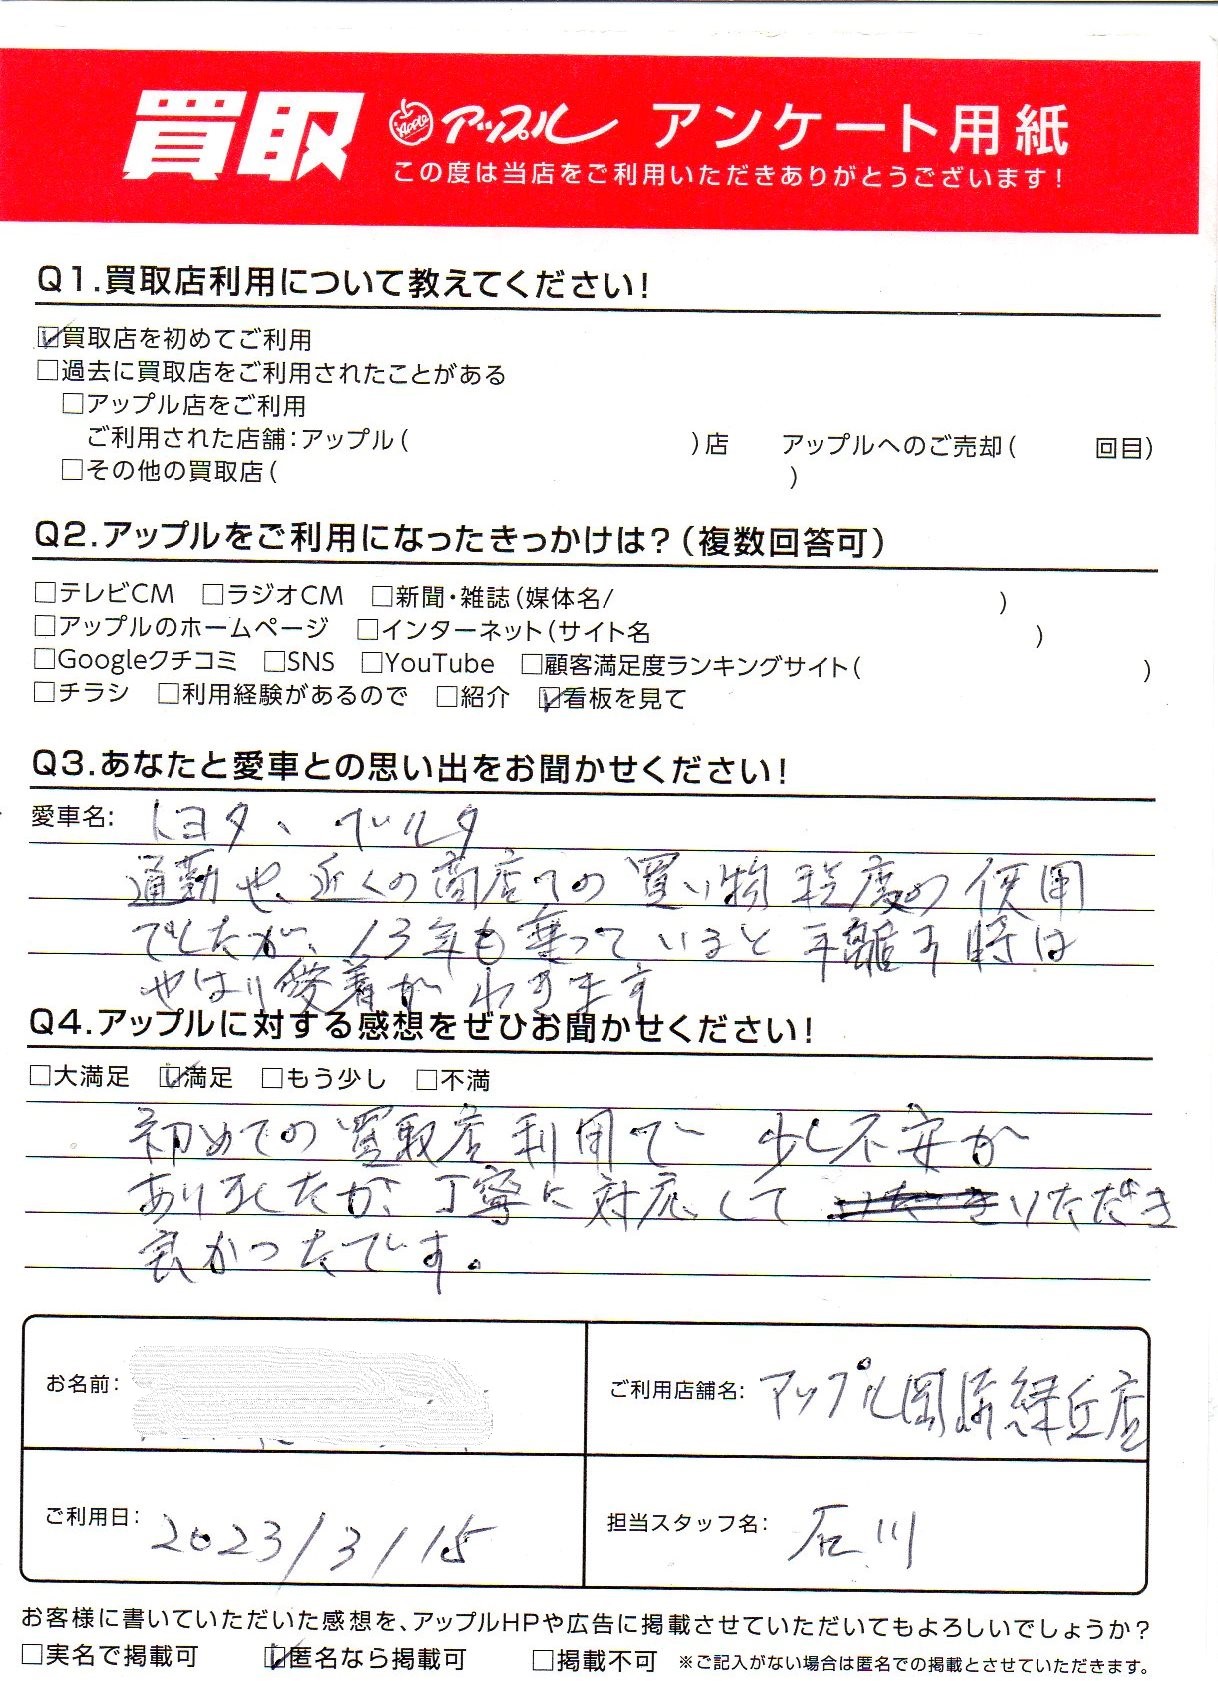 買取 Apple アップル アンケート用紙
この度は当店をご利用いただきありがとうございます!
Q1.買取店利用について教えてください!
☑買取店を初めてご利用
□過去に買取店をご利用されたことがある
□アップル店をご利用
ご利用された店舗:アップル( )店 アップルへのご売却( 回目)
□その他の買取店( )
Q2.アップルをご利用になったきっかけは?(複数回答可)
□テレビCM □ラジオCM □新聞・雑誌(媒体名/ )
□アップルのホームページ □インターネット(サイト名 )
□Googleクチコミ □SNS □YouTube □顧客満足度ランキングサイト( )
□チラシ □利用経験があるので □紹介 ☑看板を見て
Q3.あなたと愛車との思い出をお聞かせください!
愛車名: トヨタ、ベルタ
通勤や、近くの商店での買い物程度の使用
でしたが、13年も乗っていると手離す時は
やはり愛着がわきます
Q4.アップルに対する感想をぜひお聞かせください!
□大満足 ☑満足 □もう少し □不満
初めての買取店利用で少し不安が
ありましたが、丁寧に対応して いただき
良かったです。
お名前:
ご利用店舗名: アップル岡崎緑丘店
ご利用日: 2023/3/15
担当スタッフ名: 石川
お客様に書いていただいた感想を、アップルHPや広告に掲載させていただいてもよろしいでしょうか?
□実名で掲載可 ☑匿名なら掲載可 □掲載不可 ※ご記入がない場合は匿名での掲載とさせていただきます。